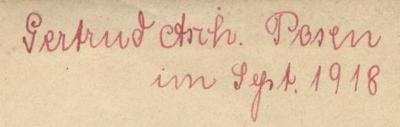 Gertrud Asch. Posen
im Sept. 1918